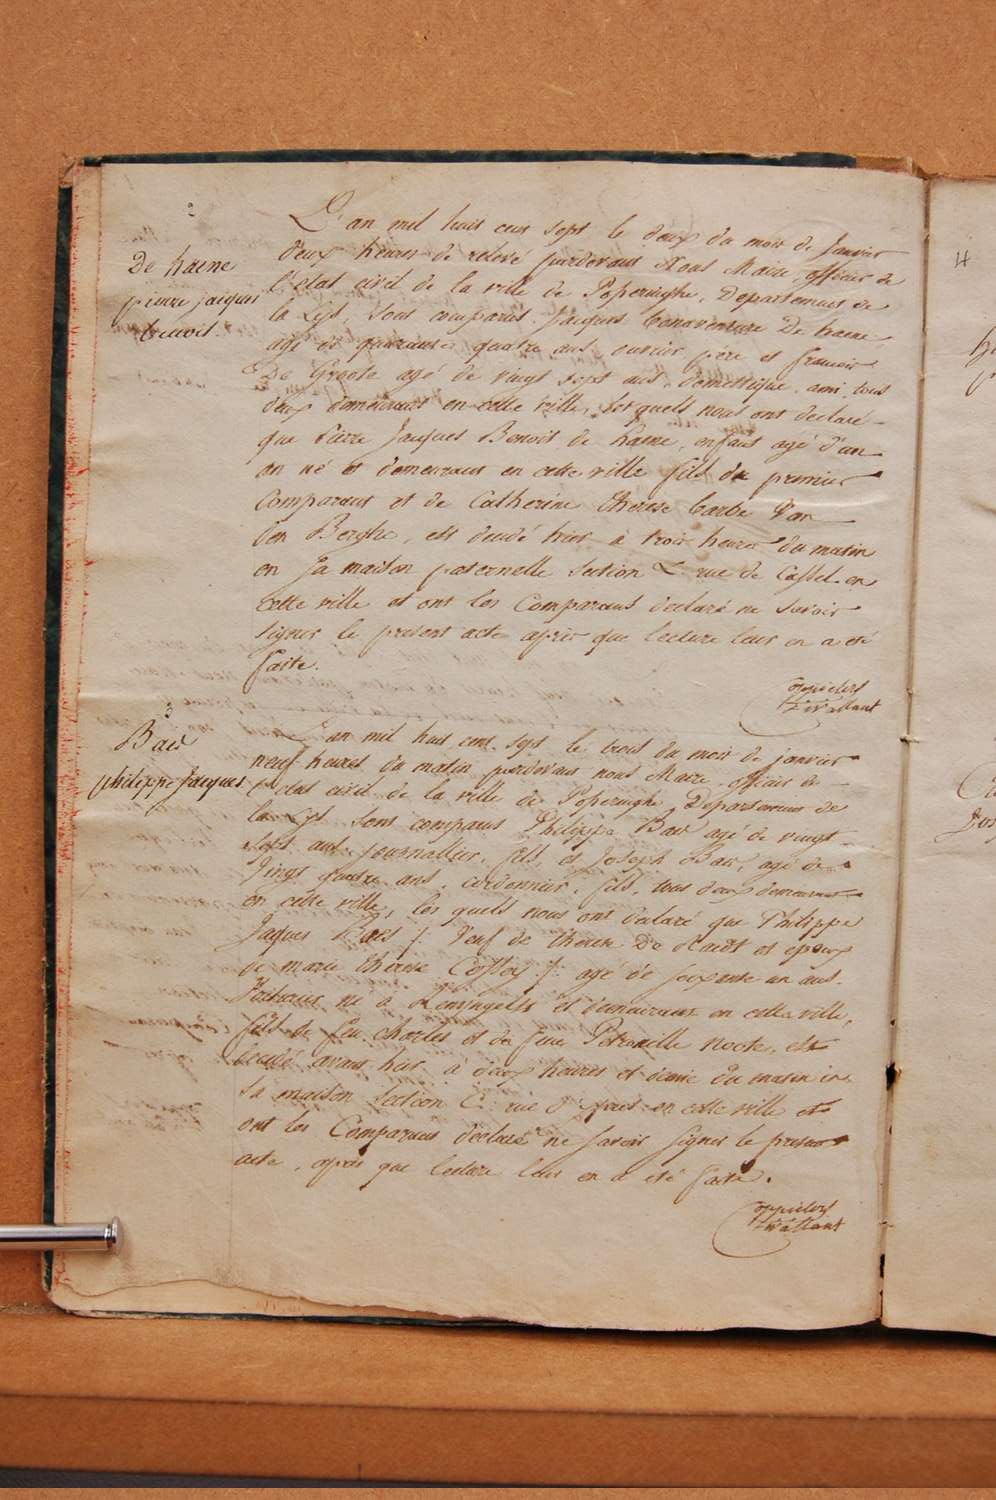 2
De haene
pierre jacques
benoit.
L'an mil huit cent sept le deux du mois de Janvier
deux heures de relevé pardevant Nous Maire officier de
l'etat civil de la ville de Poperinghe, Departement de
la Lys, Sont comparus Jacques bonaventure De haene,
agé de quarante quatre ans ouvrier père et francois
De Groote agé de vingt sept ans, domestique, ami, tous
deux demeurant en cette ville, lesquels nous ont declaré
que Pierre Jacques Benoit de haene, enfant agé d'un
an né et demeurant en cette ville fils du premier
Comparant et de Catherine therese barbe Van
den Berghe, est decedé hier à trois heures du matin
en sa maison paternelle Section C rue de Cassel en
cette ville et ont les Comparans declaré ne savoir
signer le present acte après que lecture leur en a été
faite.
3
Baes
philippe Jacques
L'an mil huit cent sept le trois du mois de janvier
neuf heures du matin pardevant nous Maire officier de
l'etat civil de la ville de Poperinghe, Departement de
la Lys Sont comparus Philippe Baes agé de vingt
Sept ans journallier, fils, et Joseph Baes, agé de
vingt quatre ans, cordonnier, fils, tous deux demeurant
en cette ville, les quels nous ont declaré que Philippe
Jaques Baes /: veuf de therese De et epoux
de marie therese :/ agé de soixante un ans
né à et demeurant en cette ville,
fils de feu Charles et de feue Petronille est
decedé avant hier à deux heures et demie du matin en
sa maison Section C rue en cette ville et
ont les Comparans declaré ne savoir signer le present
acte, après que lecture leur en a été faite.
14